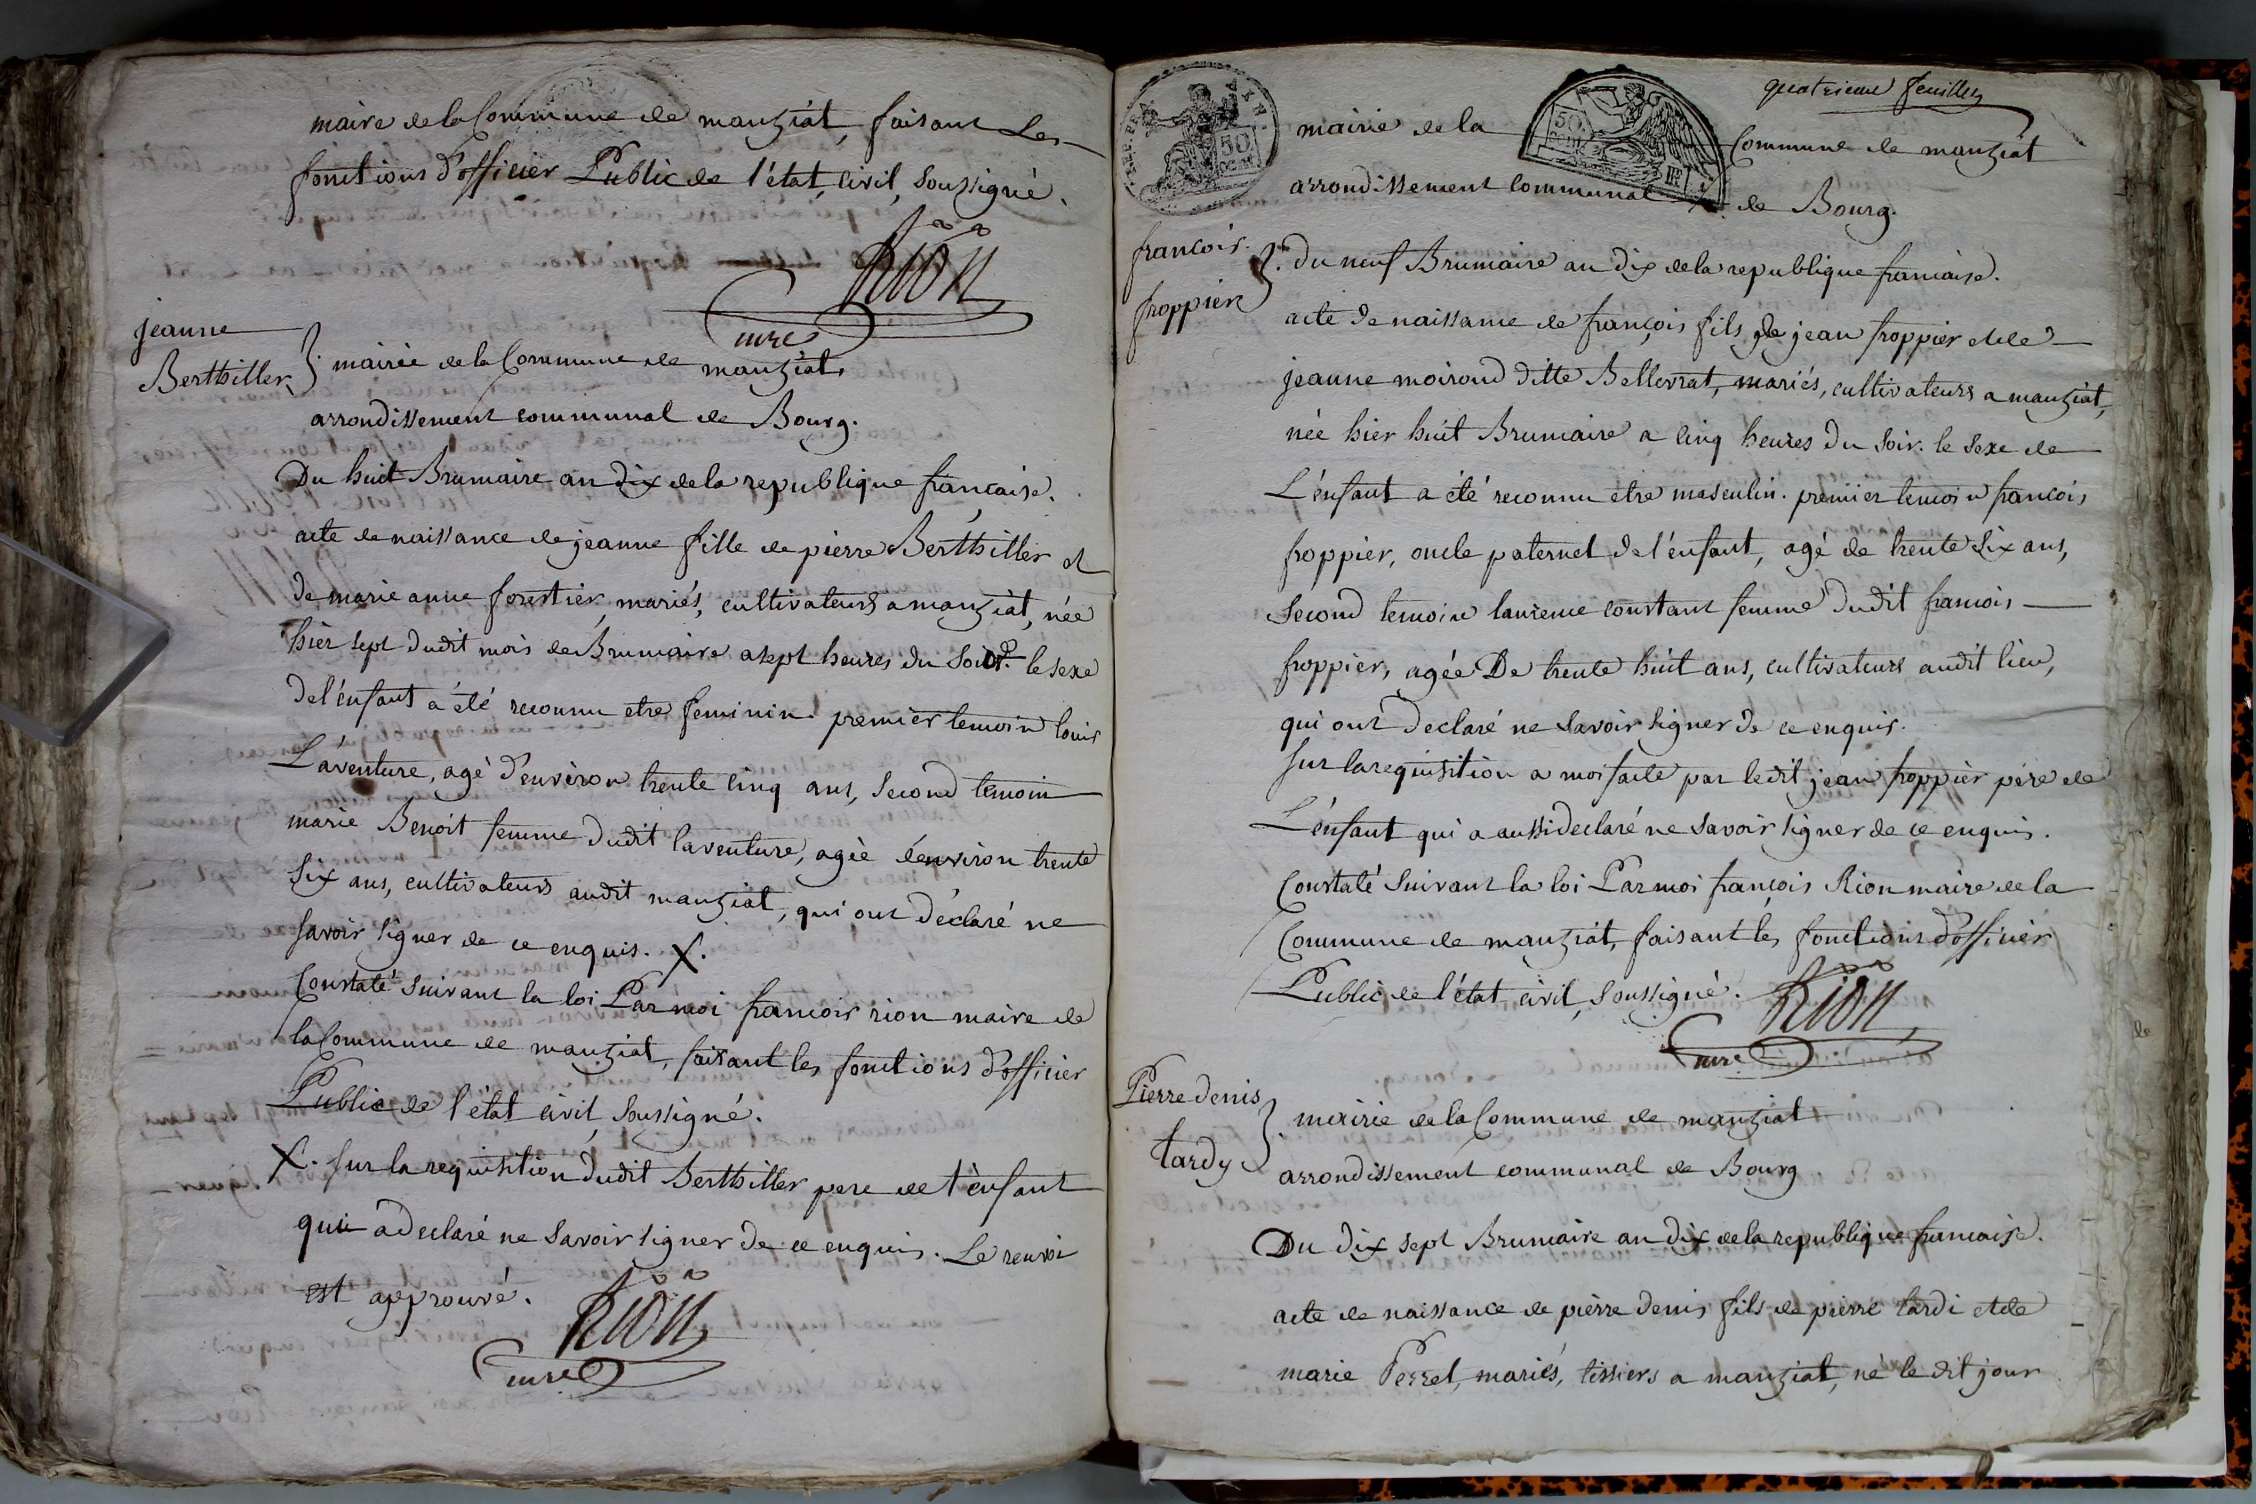 maire de la Commune de manziat, faisant Les
fonctions d'officier Public de l'état civil, soussigné.
Rion
mre
jeanne
Berthiller
mairie de la Commune de manziat,
arrondissement communal de Bourg.
Du huit Brumaire an dix de la republique française.
acte de naissance de jeanne fille de pierre Berthiller et
de marie anne forestier, mariés, cultivateurs a manziat, née
hier sept dudit mois de Brumaire a sept heures du Soir. le sexe
de l'enfant a été reconnu etre feminin. premier temoin louis
L'aventure, agé d'environ trente cinq ans, second temoin
marie Benoit femme dudit laventure, agée d'environ trente
six ans, cultivateurs audit manziat, qui ont déclaré ne
savoir signer de ce enquis. X.
Constaté suivant la loi Par moi francois rion maire de
la Commune de manziat, faisant les fonctions d'officier
Public de l'état civil, soussigné.
X. sur la requisition dudit Berthiller pere de l'enfant
qui a declaré ne savoir signer de ce enquis. Le renvoi
est approuvé.
Rion
mre
quatrieme feuillet
REP. FRA.
50
CENT.
50
CENT
mairie de la Commune de manziat
arrondissement communal de Bourg.
francois
froppier
Du neuf Brumaire an dix de la republique francaise.
acte de naissance de françois fils de jean froppier et de
jeanne moirond ditte Bellevrat, mariés, cultivateurs a manziat,
née hier huit Brumaire a cinq heures du soir. le sexe de
L'enfant a été reconnu etre masculin. premier temoin francois
froppier, oncle paternel de l'enfant, agé de trente six ans,
second temoin laurence constant femme dudit francois
froppier, agée De trente huit ans, cultivateurs audit lieu,
qui ont declaré ne savoir signer de ce enquis.
sur la requisition a moi faite par ledit jean froppier père de
L'enfant qui a aussi declaré ne savoir signer de ce enquis.
Constaté suivant la loi Par moi françois Rion maire de la
Commune de manziat, faisant les fonctions d'officier
Public de l'état civil, soussigné.
Rion
mre
Pierre denis
tardy
mairie de la Commune de manziat
arrondissement communal de Bourg
Du dix sept Brumaire an dix de la republique francaise.
acte de naissance de pierre denis fils de pierre tardi et de
marie Perret, mariés, tissiers a manziat, né le dit jour